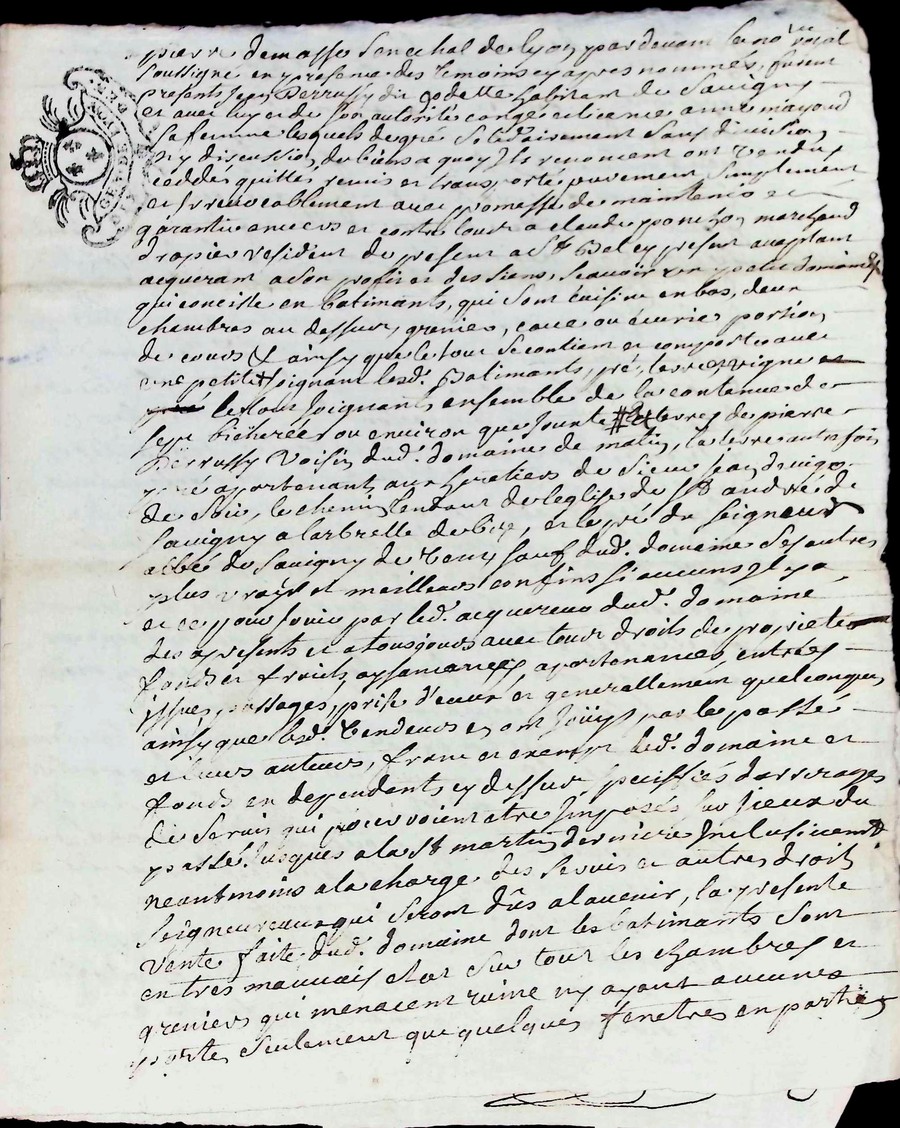 pierre demasso senechal de lyon, pardevant le no.re royal
soussigné en presence des temoins cy apres nommés, furent
presents Jean Berrussy dit godelle habitant de Savigny
et avec luy et de son autorité congé et licence anne mayoud
sa femme lesquels de gré solidairement sans division
ny discussion de biens a quoy Ils renoncent ont vendu
ceddé quitté remis et transporté purement simplement
et irrevocablement avec promesse de maintenir et
garantir envers et contre tous a claude ponchon marchand
drapier resident de present a St Bel cy present acceptant
acquerant a son profit et des siens, scavoir un petit domaine
qui consiste en batimants, qui sont cuisine en bas, deux
chambres au dessus, grenier, cave ou écurie, portion
de cours & ainsy que le tout se contient et comporte avec
une petite joignant lesd. Batimants, pré, terre vigne et
le tout joignant, ensemble de la contenue de
sept bicherées ou environ que jouxte les terres de pierre
Berrussy voisin dud. domaine de matin, la terre autrefois
pré apartenant aux heritiers de Sieur jean
de soir, le chemin tendant de l'eglise de St andré de
Savigny a larbrelle de bize, et le pré du seigneur
abbé de Savigny de vent sauf dud. domaine ses autres
plus vrays et meilleurs confins si aucuns y a,
et ce pour jouir par led. acquereur dud. domaine
des a present et a tousjours avec tous droits de proprieté
fonds et fruits, aysances, apartenances, entrées
issues, passages, prise d'eaux et generallement quelconques
ainsy que lesd. vendeurs en ont jouys par le passé
et leurs auteurs, franc et exempt led. domaine et
fonds en dependants cy dessus puissiés d'arrerages
de servis qui pouvoient etre Imposés sur jieux du
passé jusques a la St martin derniere Inclusivement
neantmoins a la charge des servis et autres droits
Seigneuriaux qui seront dûs a lavenir, la presente
vente faite dud. domaine dont les batimants sont
en tres mauvais etat sur tout les chambres et
greniers qui menacent ruine ny ayant aucunes
portes seulement que quelques fenetres en partie